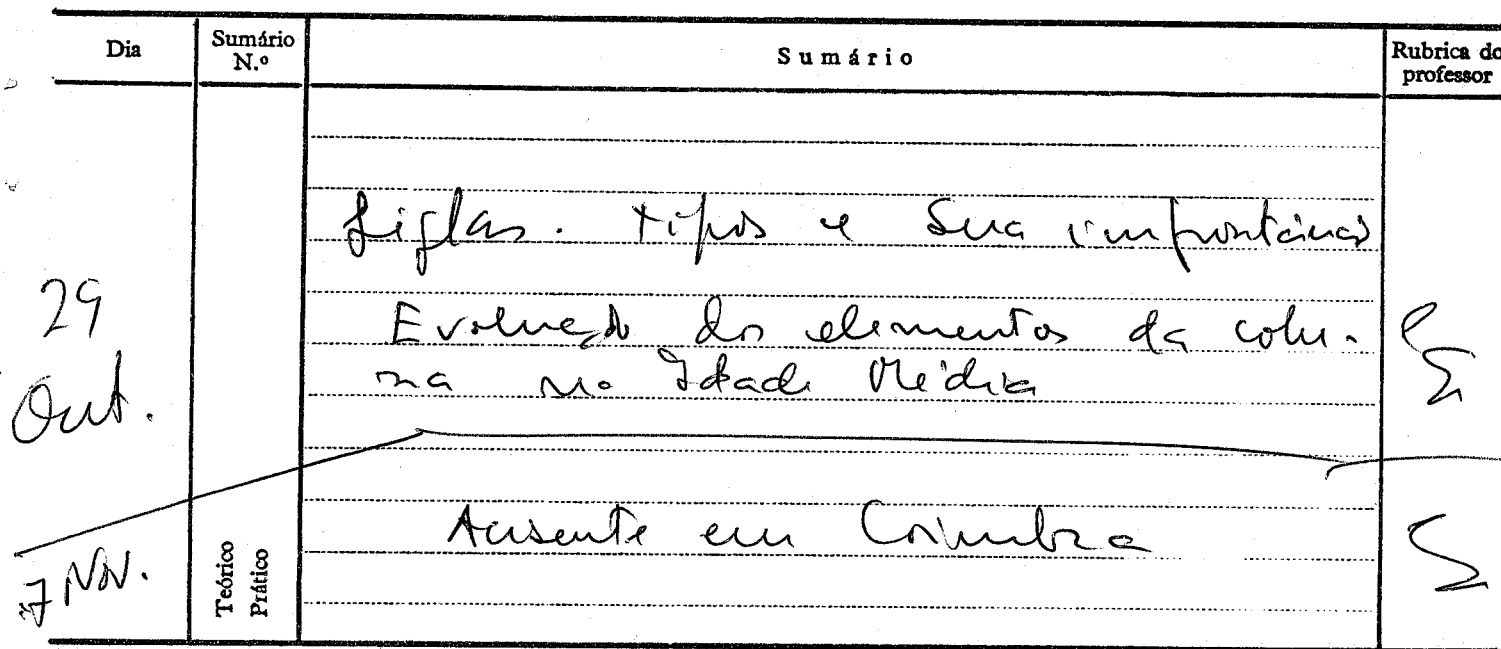 Dia
Sumário N.º
Sumário
Rubrica do professor
29 Out.
Siglas. tipos e sua importância
Evolução dos elementos da colu-
na na Idade Média
7 Nov.
Teórico
Prático
Ausente em Coimbra